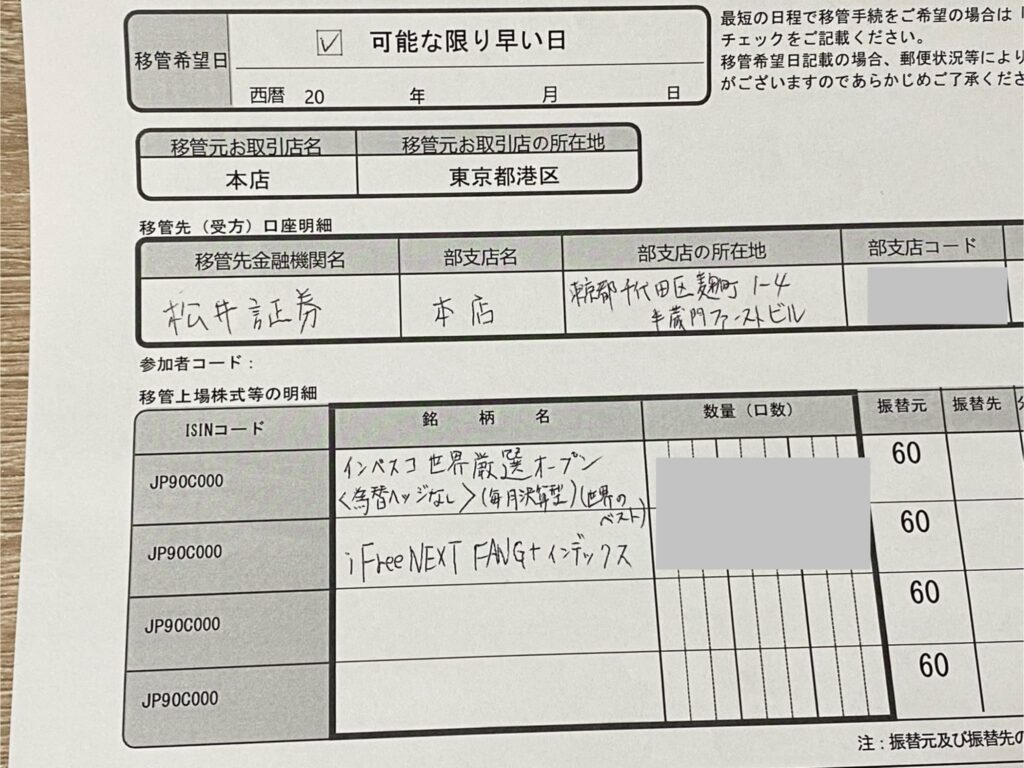 移管希望日
☑ 可能な限り早い日
西暦 20 年 月 日
最短の日程で移管手続をご希望の場合は
チェックをご記載ください。
移管希望日記載の場合、郵便状況等により
がございますのであらかじめご了承くださ
移管元お取引店名 移管元お取引店の所在地
本店 東京都港区
移管先（受方）口座明細
移管先金融機関名 部支店名 部支店の所在地 部支店コード
松井証券 本店 東京都千代田区麹町 1-4
半蔵門ファーストビル
参加者コード：
移管上場株式等の明細
ISINコード 銘柄名 数量（口数） 振替元 振替先
JP90C000 インベスコ 世界厳選オープン 60
<為替ヘッジなし>(毎月決算型)(世界の
ベスト)
JP90C000 iFreeNEXT FANG+インデックス 60
JP90C000 60
JP90C000 60
注：振替元及び振替先の